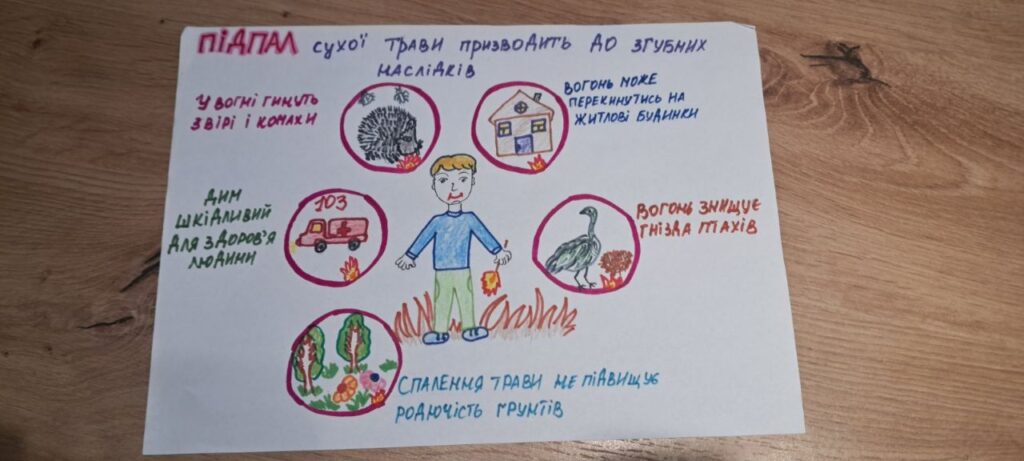 ПІДПАЛ СУХОЇ ТРАВИ ПРИЗВОДИТЬ ДО ЗГУБНИХ
НАСЛІДКІВ
У ВОГНІ ГИНУТЬ
ЗВІРІ І КОМАХИ
ВОГОНЬ МОЖЕ
ПЕРЕКИНУТИСЬ НА
ЖИТЛОВІ БУДИНКИ
ДИМ
ШКІДЛИВИЙ
ДЛЯ ЗДОРОВ'Я
ЛЮДИНИ
103
ВОГОНЬ ЗНИЩУЄ
ГНІЗДА ПТАХІВ
СПАЛЕННЯ ТРАВИ НЕ ПІДВИЩУЄ
РОДЮЧІСТЬ ҐРУНТІВ